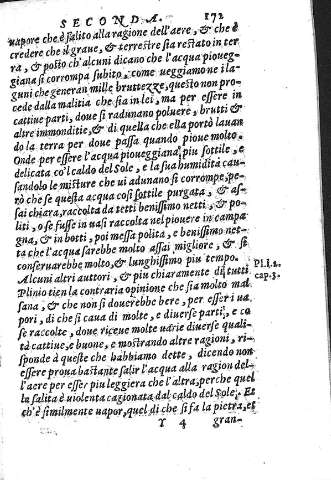 SECONDA. 172
uapore che è salito alla ragione dell'aere, & che è
credere che il graue, & terrestre sia restato in ter
ra, & posto ch'alcuni dicano che l'acqua pioueg-
giana si corrompa subito, come ueggiamo ne i la-
guni che generan mille bruttezze, questo non pro-
cede dalla malitia che sia in lei, ma per essere in
cattiue parti, doue si radunano poluere, brutti &
altre immonditie, & di quella che ella portò lauan
do la terra per doue passa quando pioue molto.
Onde per essere l'acqua pioueggiana, piu sottile, e
delicata co'l caldo del Sole, e la sua humidità cau-
sandolo le misture che ui adunano si corrompe, pe-
rò che se questa acqua così sottile purgata, & as-
sai chiara, raccolta da tetti benissimo netti, & po-
liti, o se fusse in uasi raccolta nel piouere in campa
gna, & in botti, poi messa polita, e benissimo net-
ta che l'acqua sarebbe molto assai migliore, & si
conseruarebbe molto, & lunghissimo piu tempo.
Alcuni altri auttori, & piu chiaramente di tutti Pl.l.2.
Plinio tien la contraria opinione che sia molto mal cap.3.
sana, & che non si douerebbe bere, per esser i ua
pori, di che si caua di molte, e diuerse parti, e co
se raccolte, doue riceue molte uarie diuerse quali-
tà cattiue, e buone, e mostrando altre ragioni, ri-
sponde à queste che habbiamo dette, dicendo non
essere proua bastante salir l'acqua alla ragion del-
l'aere per esser piu leggiera che l'altra, perche quel
la salita è uiolenta cagionata dal caldo del Sole. Et
ch'è similmente uapor, quel di che si fa la pietra, et
Y 4 gran-